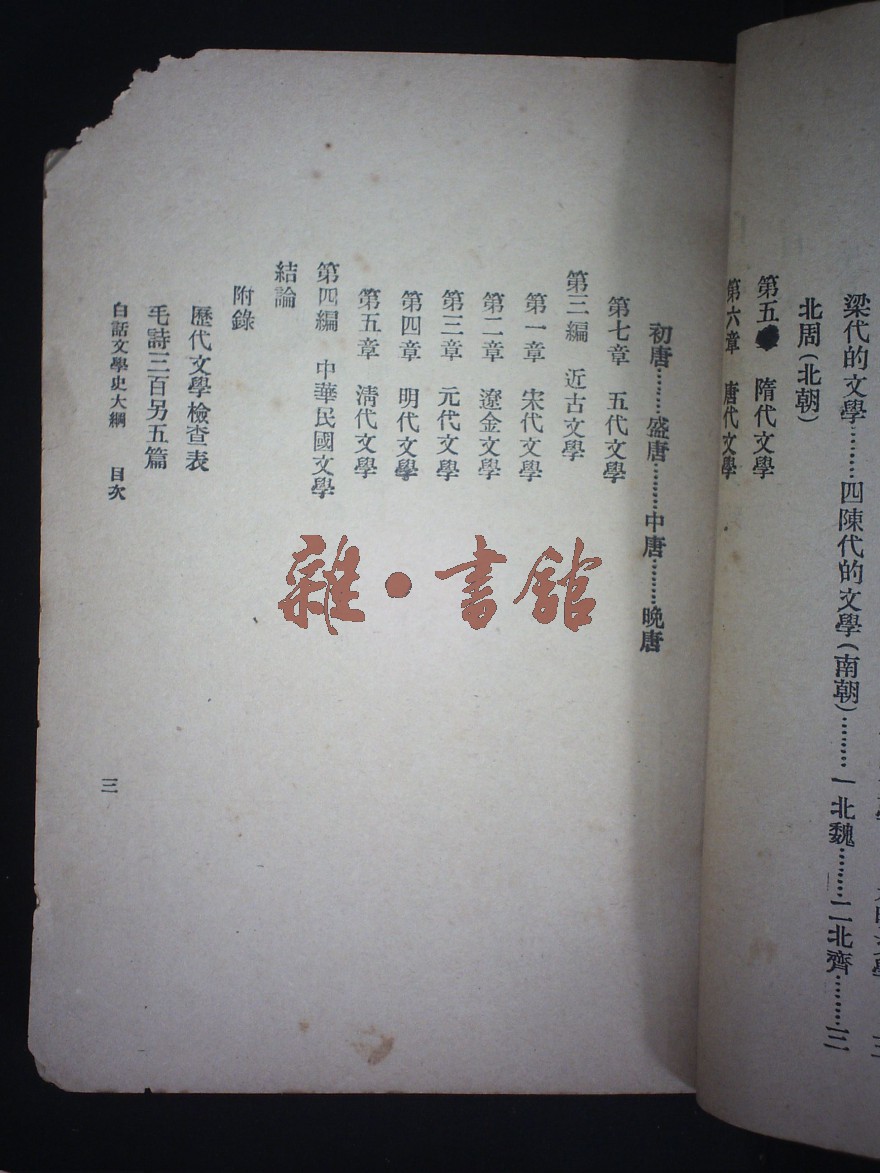 梁代的文學………四陳代的文學(南朝)………一北魏………二北齊………三
北周(北朝)
第五 隋代文學
第六章 唐代文學
初唐………盛唐………中唐………晚唐
第七章 五代文學
第三編 近古文學
第一章 宋代文學
第二章 遼金文學
第三章 元代文學
第四章 明代文學
第五章 清代文學
第四編 中華民國文學
結論
附錄
歷代文學檢查表
毛詩三百另五篇
白話文學史大綱 目次
三
雜·書館